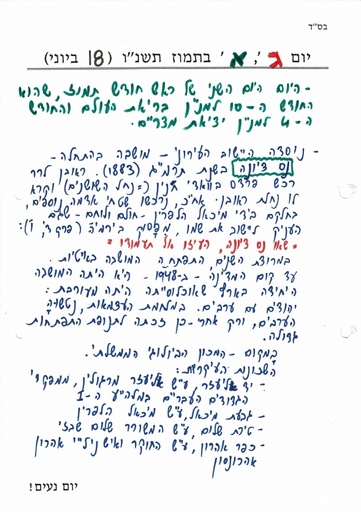 בס"ד
יום ג', א' בתמוז תשנ"ו (18 ביוני)
- היום היום השני של ראש חודש תמוז, שהוא
החודש ה-10 למנין בריאת העולם והחודש
ה-4 למנין יציאת מצרים.
- נוסדה היישוב העירוני - מושבה בהתחלה -
נס ציונה בשנת תרמ"ג (1883). ראובן לרר
רכש פרדס בואדי חנין (=נחל השושנים) וקרא
לו נחלת ראובן. אח"כ, נרכשו שטחי אדמה נוספים,
בחלקם בידי מיכאל הלפרין - חולם ולוחם - שגם
העניק ליישוב את שמו, מפסוק בירמיה (פרק ד', ו'):
"שאו נס ציונה, העיזו אל תעמודו"
במרוצת השנים התפתחה המושבה באיטיות.
עד קום המדינה - ב-1948 - היא היתה המושבה
היחידה בארץ שאוכלוסייתה היתה מעורבת:
יהודים עם ערבים. במלחמת העצמאות, נטשוה
הערבים, ורק אחרי-כן זכתה לתנופת התפתחות
גדולה.
במקום - המכון הביולוגי הממשלתי.
השכונות העיקריות:
- יד אליעזר, ע"ש אליעזר מרגולין, ממפקדי
הגדודים העבריים במלה"ע ה-I
- גבעת מיכאל, ע"ש מיכאל הלפרין
- טירת שלום, ע"ש המשורר שלום שבזי
- כפר אהרון, ע"ש החוקר ואיש ניל"י אהרון
אהרונסון
יום נעים!